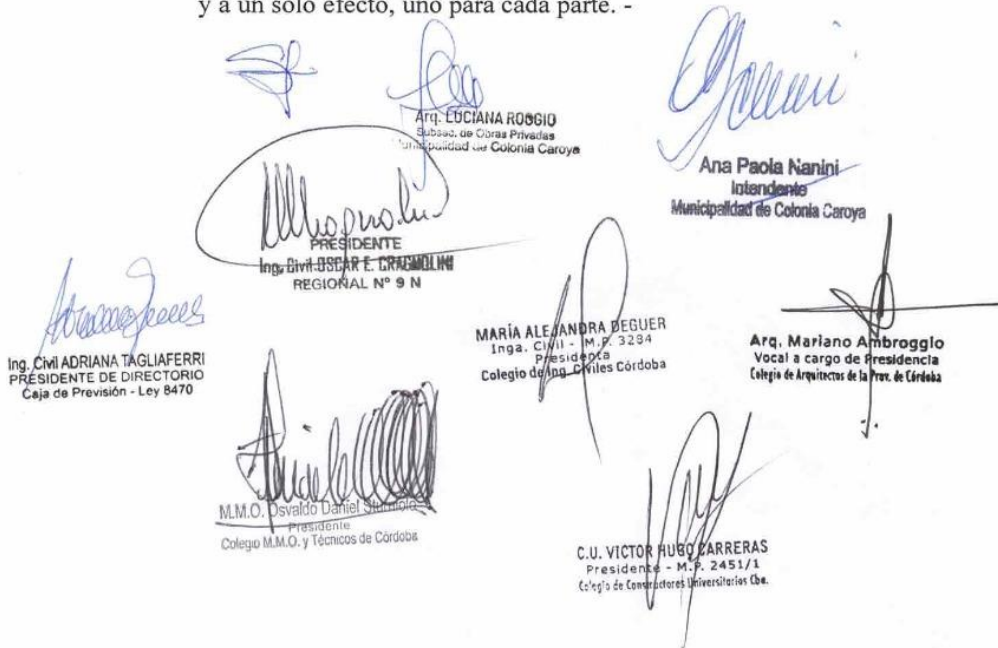 y a un solo efecto, uno para cada parte. -
Arq. LUCIANA ROGGIO
Subsec. de Obras Privadas
Municipalidad de Colonia Caroya
Ana Paola Nanini
Intendente
Municipalidad de Colonia Caroya
PRESIDENTE
Ing. Civil OSCAR E. CRAGNOLINI
REGIONAL Nº 9 N
Ing. Civil ADRIANA TAGLIAFERRI
PRESIDENTE DE DIRECTORIO
Caja de Previsión - Ley 8470
MARÍA ALEJANDRA DEGUER
Inga. Civil - M.P. 3284
Presidenta
Colegio de Ing. Civiles Córdoba
Arq. Mariano Ambroggio
Vocal a cargo de Presidencia
Colegio de Arquitectos de la Prov. de Córdoba
M.M.O. Osvaldo Daniel
Presidente
Colegio M.M.O. y Técnicos de Córdoba
C.U. VICTOR HUGO CARRERAS
Presidente - M.P. 2451/1
Colegio de Constructores Universitarios Cba.